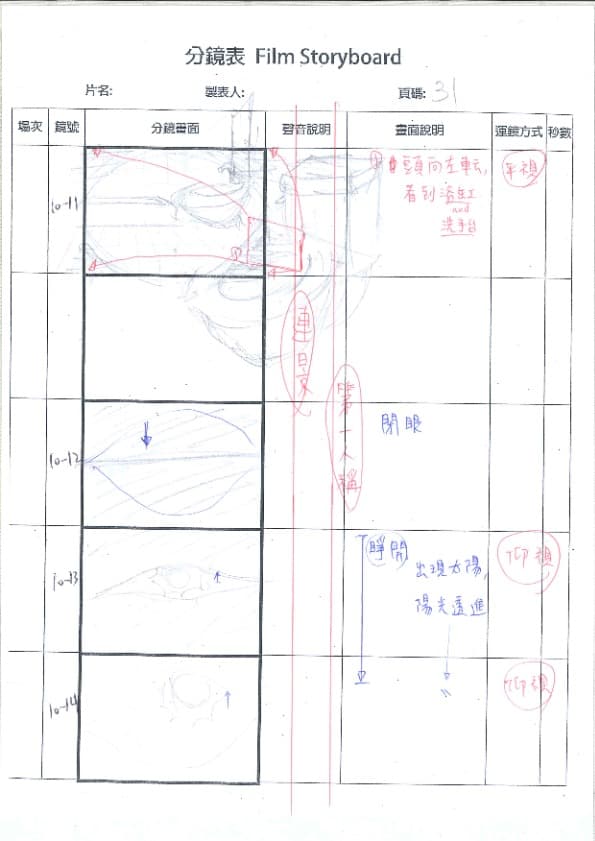 分鏡表 Film Storyboard
片名:
製表人:
頁碼: 31
場次 鏡號 分鏡畫面 聲音說明 畫面說明 運鏡方式 秒數
10-11
① 頭向左転,
看到浴缸
and
洗手台
平視
①
第一人稱
10-12
閉眼
10-13
睜開
出現太陽,
陽光透進
仰視
10-14
仰視